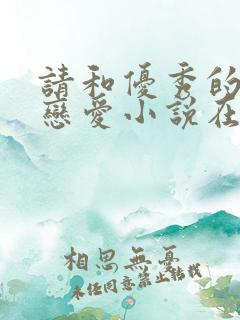 請和優秀的
戀愛小說在
相思無憂
未經同意禁止轉載